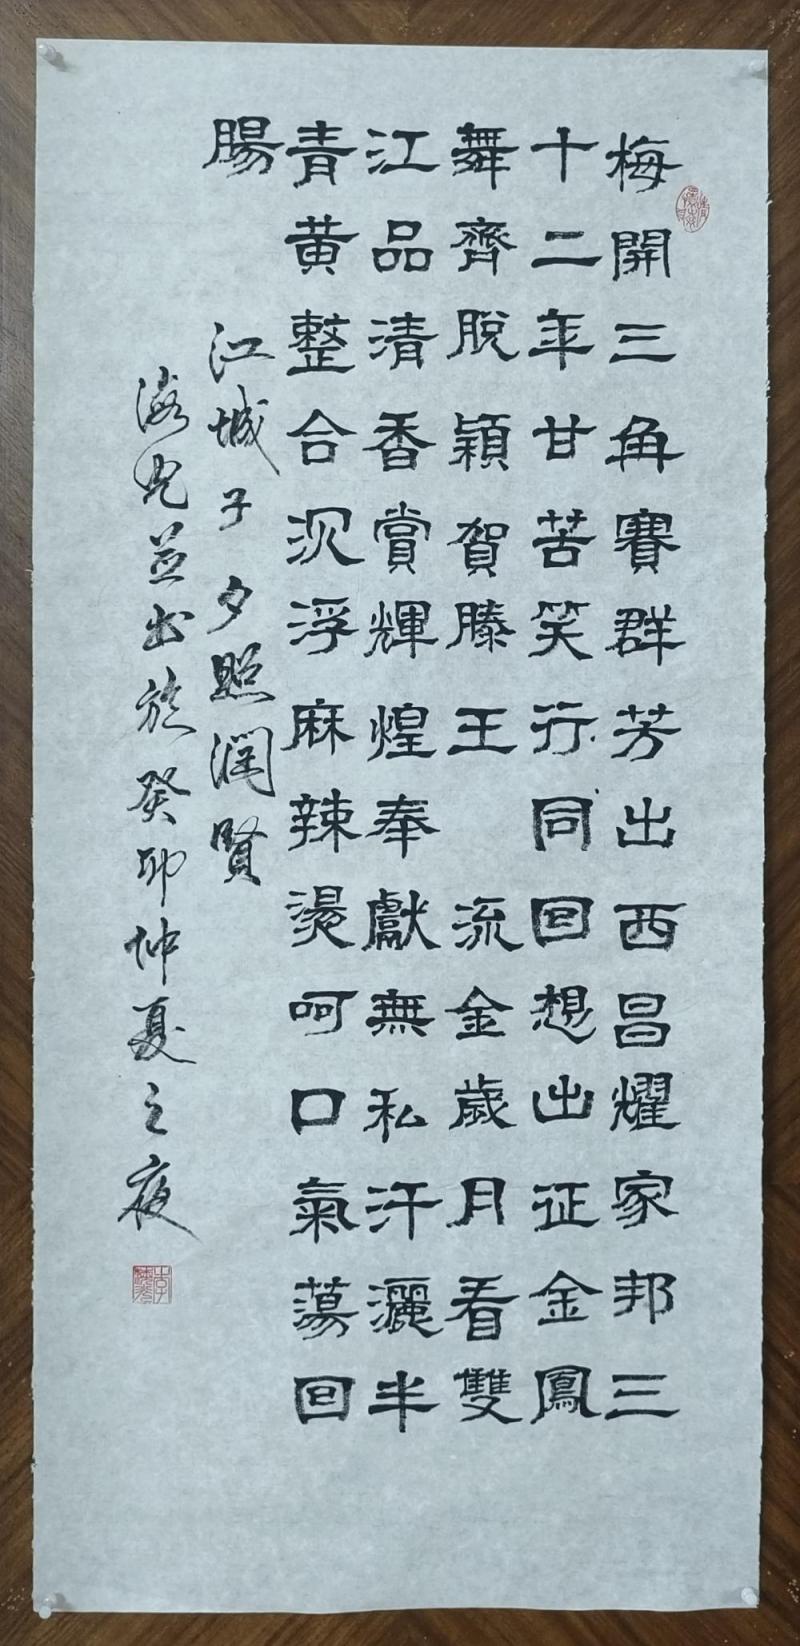 梅開三角賽群芳出西昌耀家邦三
十二年甘苦笑行同回想出征金鳳
舞齊脫穎賀滕王 流金歲月看雙
江品清香賞輝煌奉獻無私汗灑半
青黃整合沉浮麻辣燙呵口氣蕩回
腸
江城子夕照潤賢
海光並書於癸卯仲夏之夜